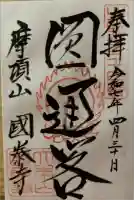 奉拝
令和 年 四月三十日
圓通閣
摩頂山 國泰寺